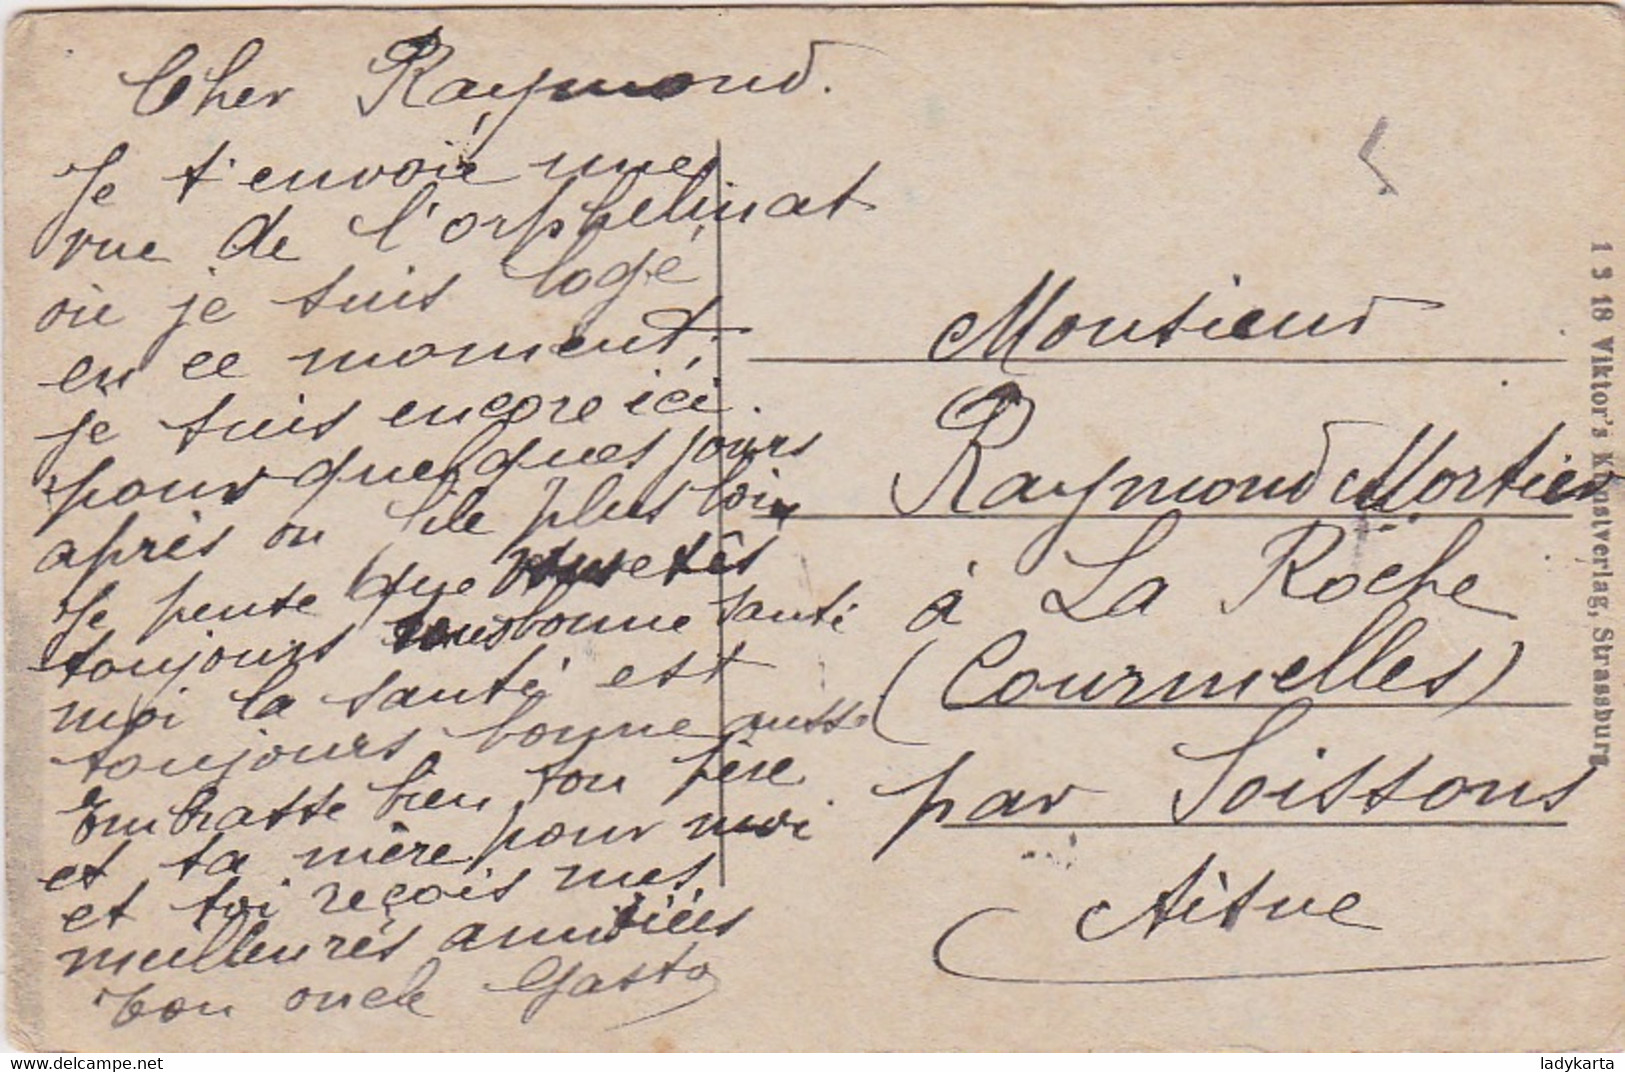 Cher Raymond.
Je t'envoie une
vue de l'orphelinat
où je suis logé
en ce moment,
je suis encore ici
pour quelques jours
après on file plus loin
Je pense que vous êtes
toujours tous bonne santé
moi la santé est
toujours bonne aussi
embrasse bien ton père
et ta mère pour moi
et toi reçois mes
meilleures amitiées
ton oncle Gaston
Monsieur
Raymond Mortier
à La Roche
(Courmelles)
par Soissons
Aisne
1 3 18 Viktor's Kunstverlag, Strassburg
ladykarta